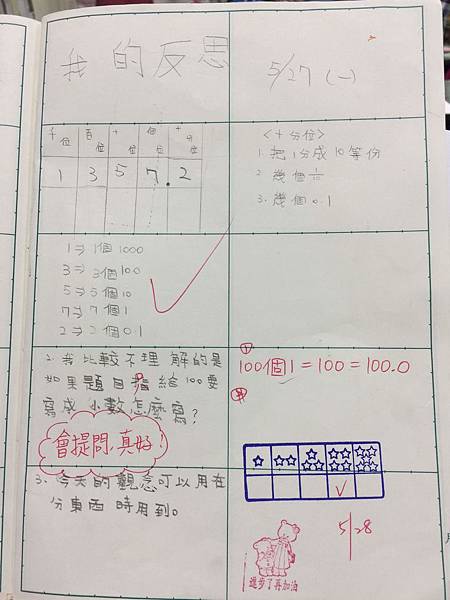 我的反思
5/27 (一)
千位 百位 十位 個位 十分位
1 3 5 7.2
<十分位>
1. 把1分成10等份
2. 幾個1/10
3. 幾個0.1
1⇒1個1000
3⇒3個100
5⇒5個10
7⇒7個1
2⇒2個0.1
2. 我比較不理解的是
如果題目給100要
寫成小數怎麼寫?
100個1=100=100.0
會提問,真好!
3. 今天的觀念可以用在
分東西時用到。
5/28
進步了再加油